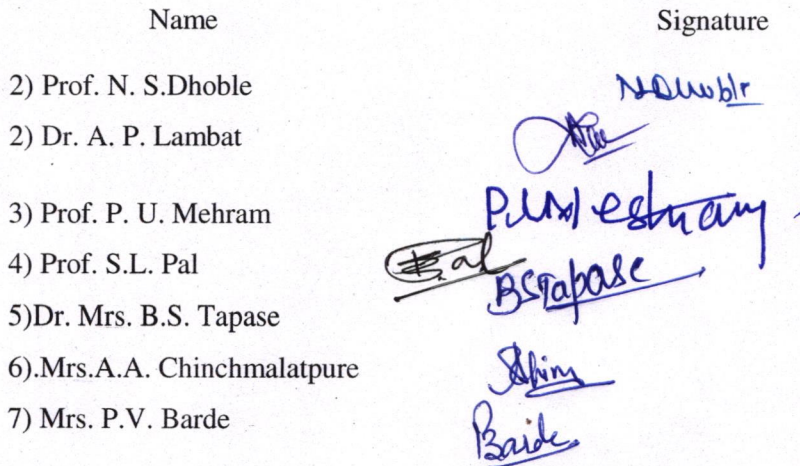 Name Signature
2) Prof. N. S.Dhoble NSDhoble
2) Dr. A. P. Lambat
3) Prof. P. U. Mehram
4) Prof. S.L. Pal Pal
5)Dr. Mrs. B.S. Tapase BSTapase
6).Mrs.A.A. Chinchmalatpure
7) Mrs. P.V. Barde Barde